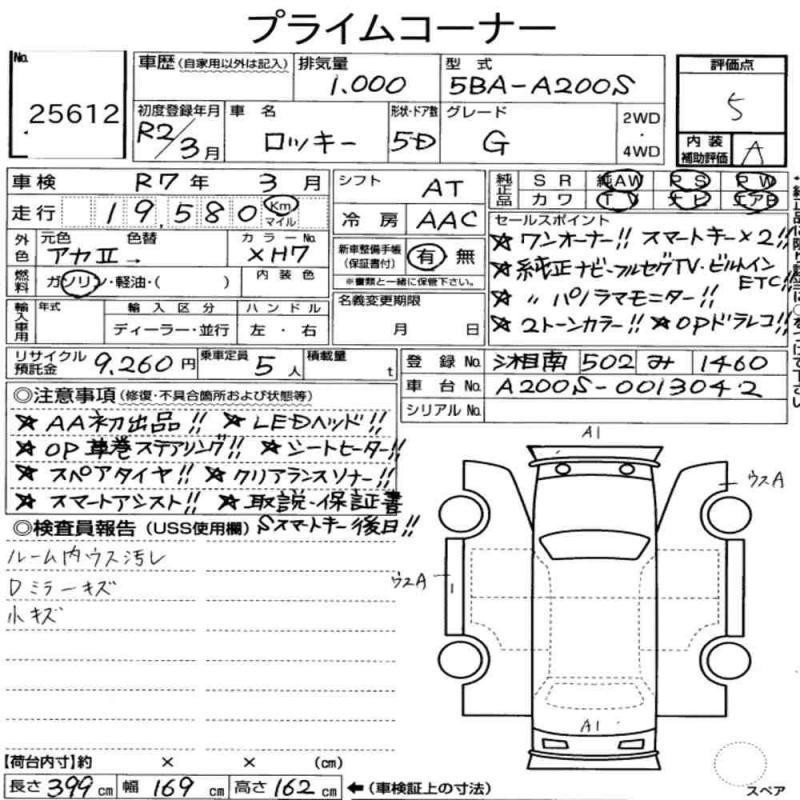 プライムコーナー
No. 25612
車歴 (自家用以外は記入)
排気量 1.000
型式 5BA-A200S
評価点 5
初度登録年月 R2/3月
車名 ロッキー
形状・ドア数 5D
グレード G
2WD・4WD
内装補助評価 A
車検 R7年 3月
シフト AT
純正品 SR 純AW PS PW
カワ TV ナビ エアB
走行 19,580 Km マイル
冷房 AAC
外色 元色 アカⅡ→ 色替 カラーNo. XH7
新車整備手帳(保証書付) 有・無
※書類と一緒に保管下さい。
セールスポイント
★ワンオーナー!! スマートキー×2!!
★純正ナビ・フルセグTV・ビルトインETC!!
★〃パノラマモニター!!
★2トーンカラー!! ★OPドラレコ!!
燃料 ガソリン・軽油・( ) 内装色
名義変更期限 月 日
輸入車用 年式 輸入区分 ハンドル
ディーラー・並行 左・右
リサイクル預託金 9,260円 乗車定員 5人 積載量 t
登録No. 湘南 502 み 1460
車台No. A200S-0013042
シリアルNo.
◎注意事項 (修復・不具合箇所および状態等)
★AA初出品!! ★LEDヘッド!!
★OP革巻ステアリング!! ★シートヒーター!!
★スペアタイヤ!! ★クリアランスソナー!!
★スマートアシスト!! ★取説・保証書
Sスマートキー後日!!
◎検査員報告 (USS使用欄)
ルーム内ウス汚レ
Dミラーキズ
小キズ
A1
ウスA
ウスA
A1
スペア
【荷台内寸】約 × × (cm)
長さ 399cm 幅 169cm 高さ 162cm ←(車検証上の寸法)